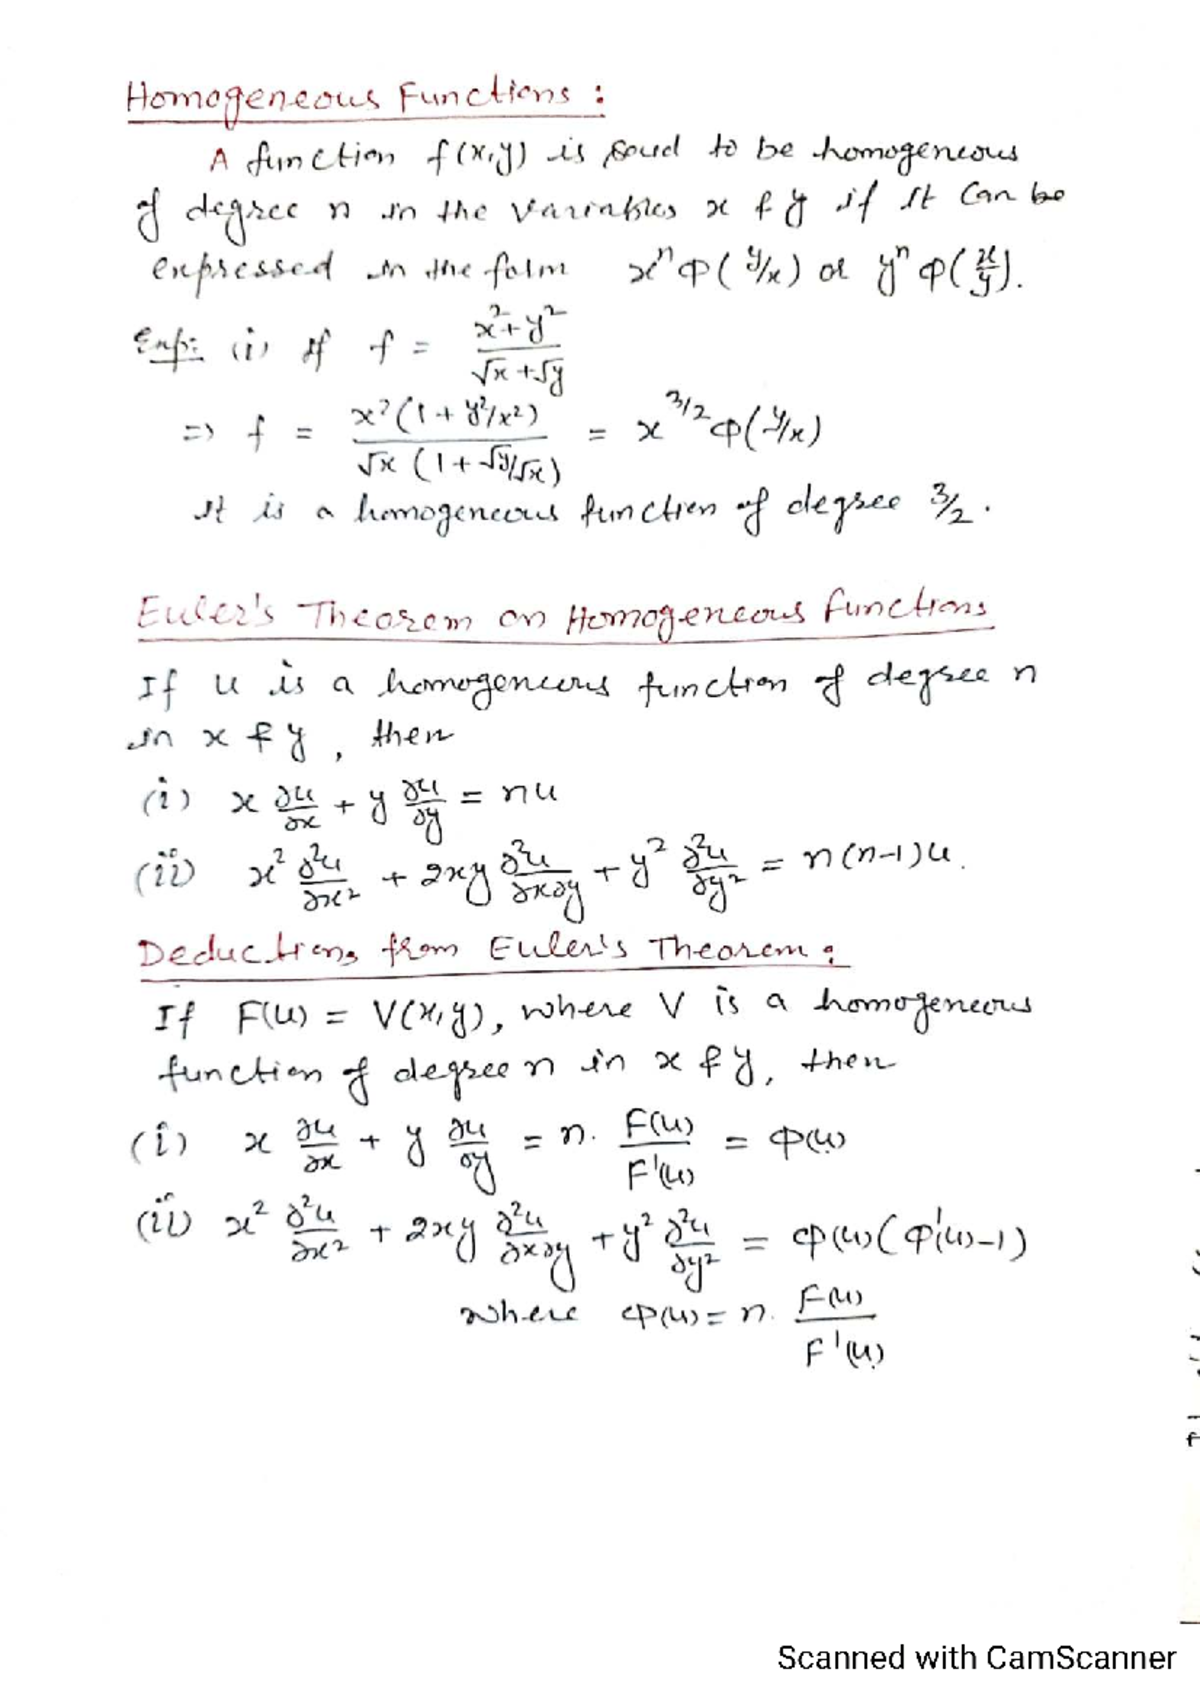 Homogeneous Functions :
A function f(x,y) is said to be homogeneous
of degree n in the variables x & y if it can be
expressed in the form xⁿ φ(y/x) or yⁿ φ(x/y).
Exp: (i) If f = (x²+y²)/(√x+√y)
=> f = x²(1+y²/x²)/(√x(1+√y/√x)) = x^{3/2} φ(y/x)
It is a homogeneous function of degree 3/2.
Euler's Theorem on Homogeneous functions
If u is a homogeneous function of degree n
in x & y, then
(i) x ∂u/∂x + y ∂u/∂y = nu
(ii) x² ∂²u/∂x² + 2xy ∂²u/∂x∂y + y² ∂²u/∂y² = n(n-1)u.
Deductions from Euler's Theorem:
If F(u) = V(x,y), where V is a homogeneous
function of degree n in x & y, then
(i) x ∂u/∂x + y ∂u/∂y = n. F(u)/F'(u) = φ(u)
(ii) x² ∂²u/∂x² + 2xy ∂²u/∂x∂y + y² ∂²u/∂y² = φ(u)(φ'(u)-1)
where φ(u) = n. F(u)/F'(u)
Scanned with CamScanner